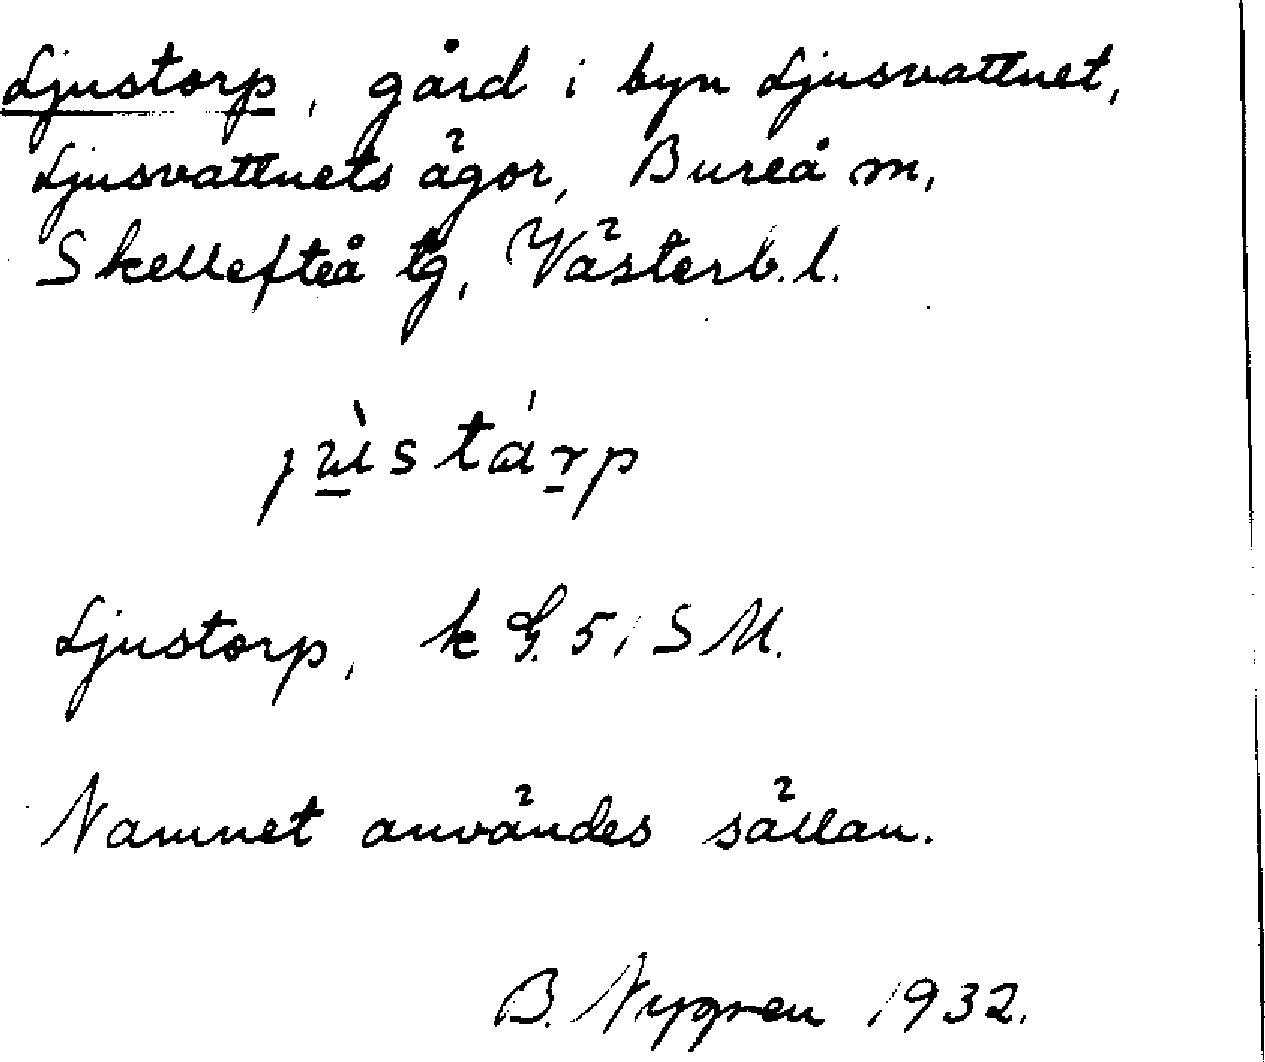 Ljustorp, gård i byn Ljusvattnet,
Ljusvattnets ägor, Bureå m,
Skellefteå tg, Västerb. l.
jùstárp
Ljustorp, k G. 5, S M.
Namnet användes sällan.
B. Nygren 1932.